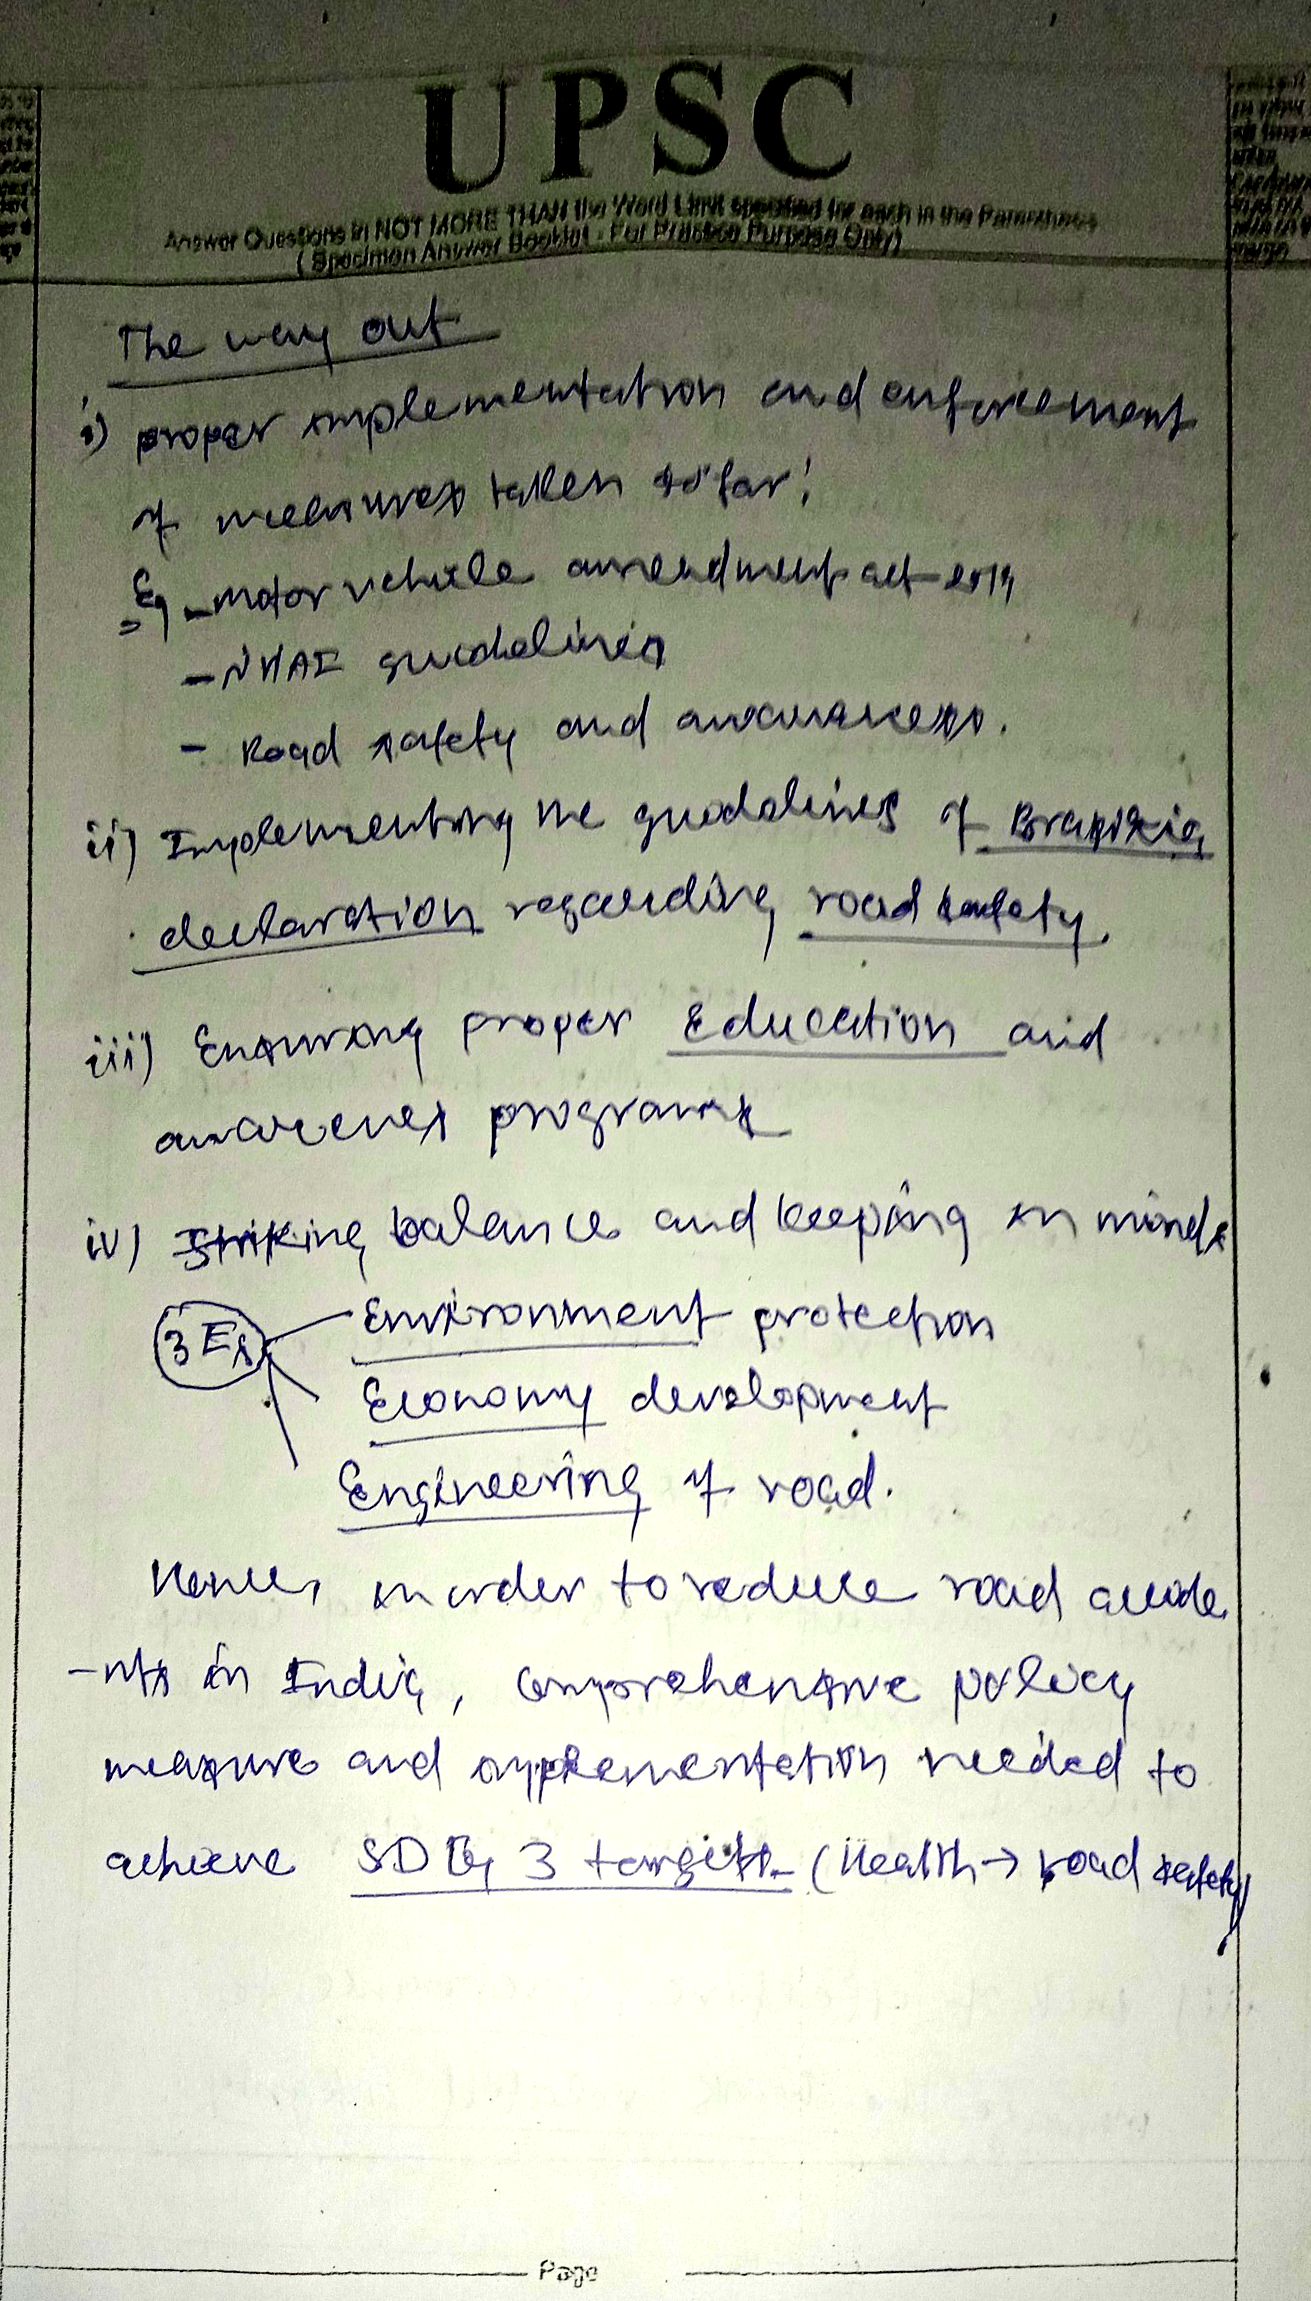 UPSC
Answer Questions in NOT MORE THAN the Word Limit specified for each in the Parenthesis
( Specimen Answer Booklet - For Practice Purpose Only)
The way out
i) proper implementation and enforcement
of measures taken so far:
Eg - motor vehicle amendment act - 2019
- NHAI guidelines
- Road safety and awareness.
ii) Implementing the guidelines of Brasilia
declaration regarding road safety.
iii) Ensuring proper Education and
awareness programs
iv) Striking balance and keeping in minds
3 Es Environment protection
Economy development
Engineering of road.
Hence, in order to reduce road accide
-nts in India, comprehensive policy
measure and implementation needed to
achieve SDG 3 targets (Health → road safety)
Page